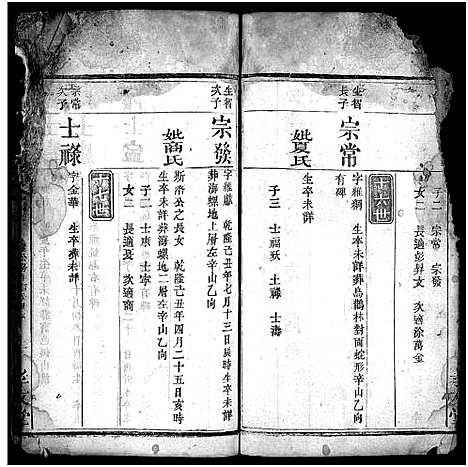 子二 宗常 宗發
女二 長適彭昇文 次適涂萬金
十六世
生智長子
宗常
字維綱 生卒未詳葬烏鶴林對面蛇形辛山乙向
有碑
妣夏氏
生卒未詳
子三 士福殀 士祿 士海
生智次子
宗發
字維獻 乾隆己丑年七月十三日辰時生卒未詳
葬海螺地上層左辛山乙向
妣商氏
斯洛公之長女 乾隆己丑年四月二十五日亥時
生卒未詳葬海螺地二層左辛山乙向
子二 士庚 士寧
女二 長適袁 次適商
十七世
宗常次子
士祿
字金華 生卒葬未詳